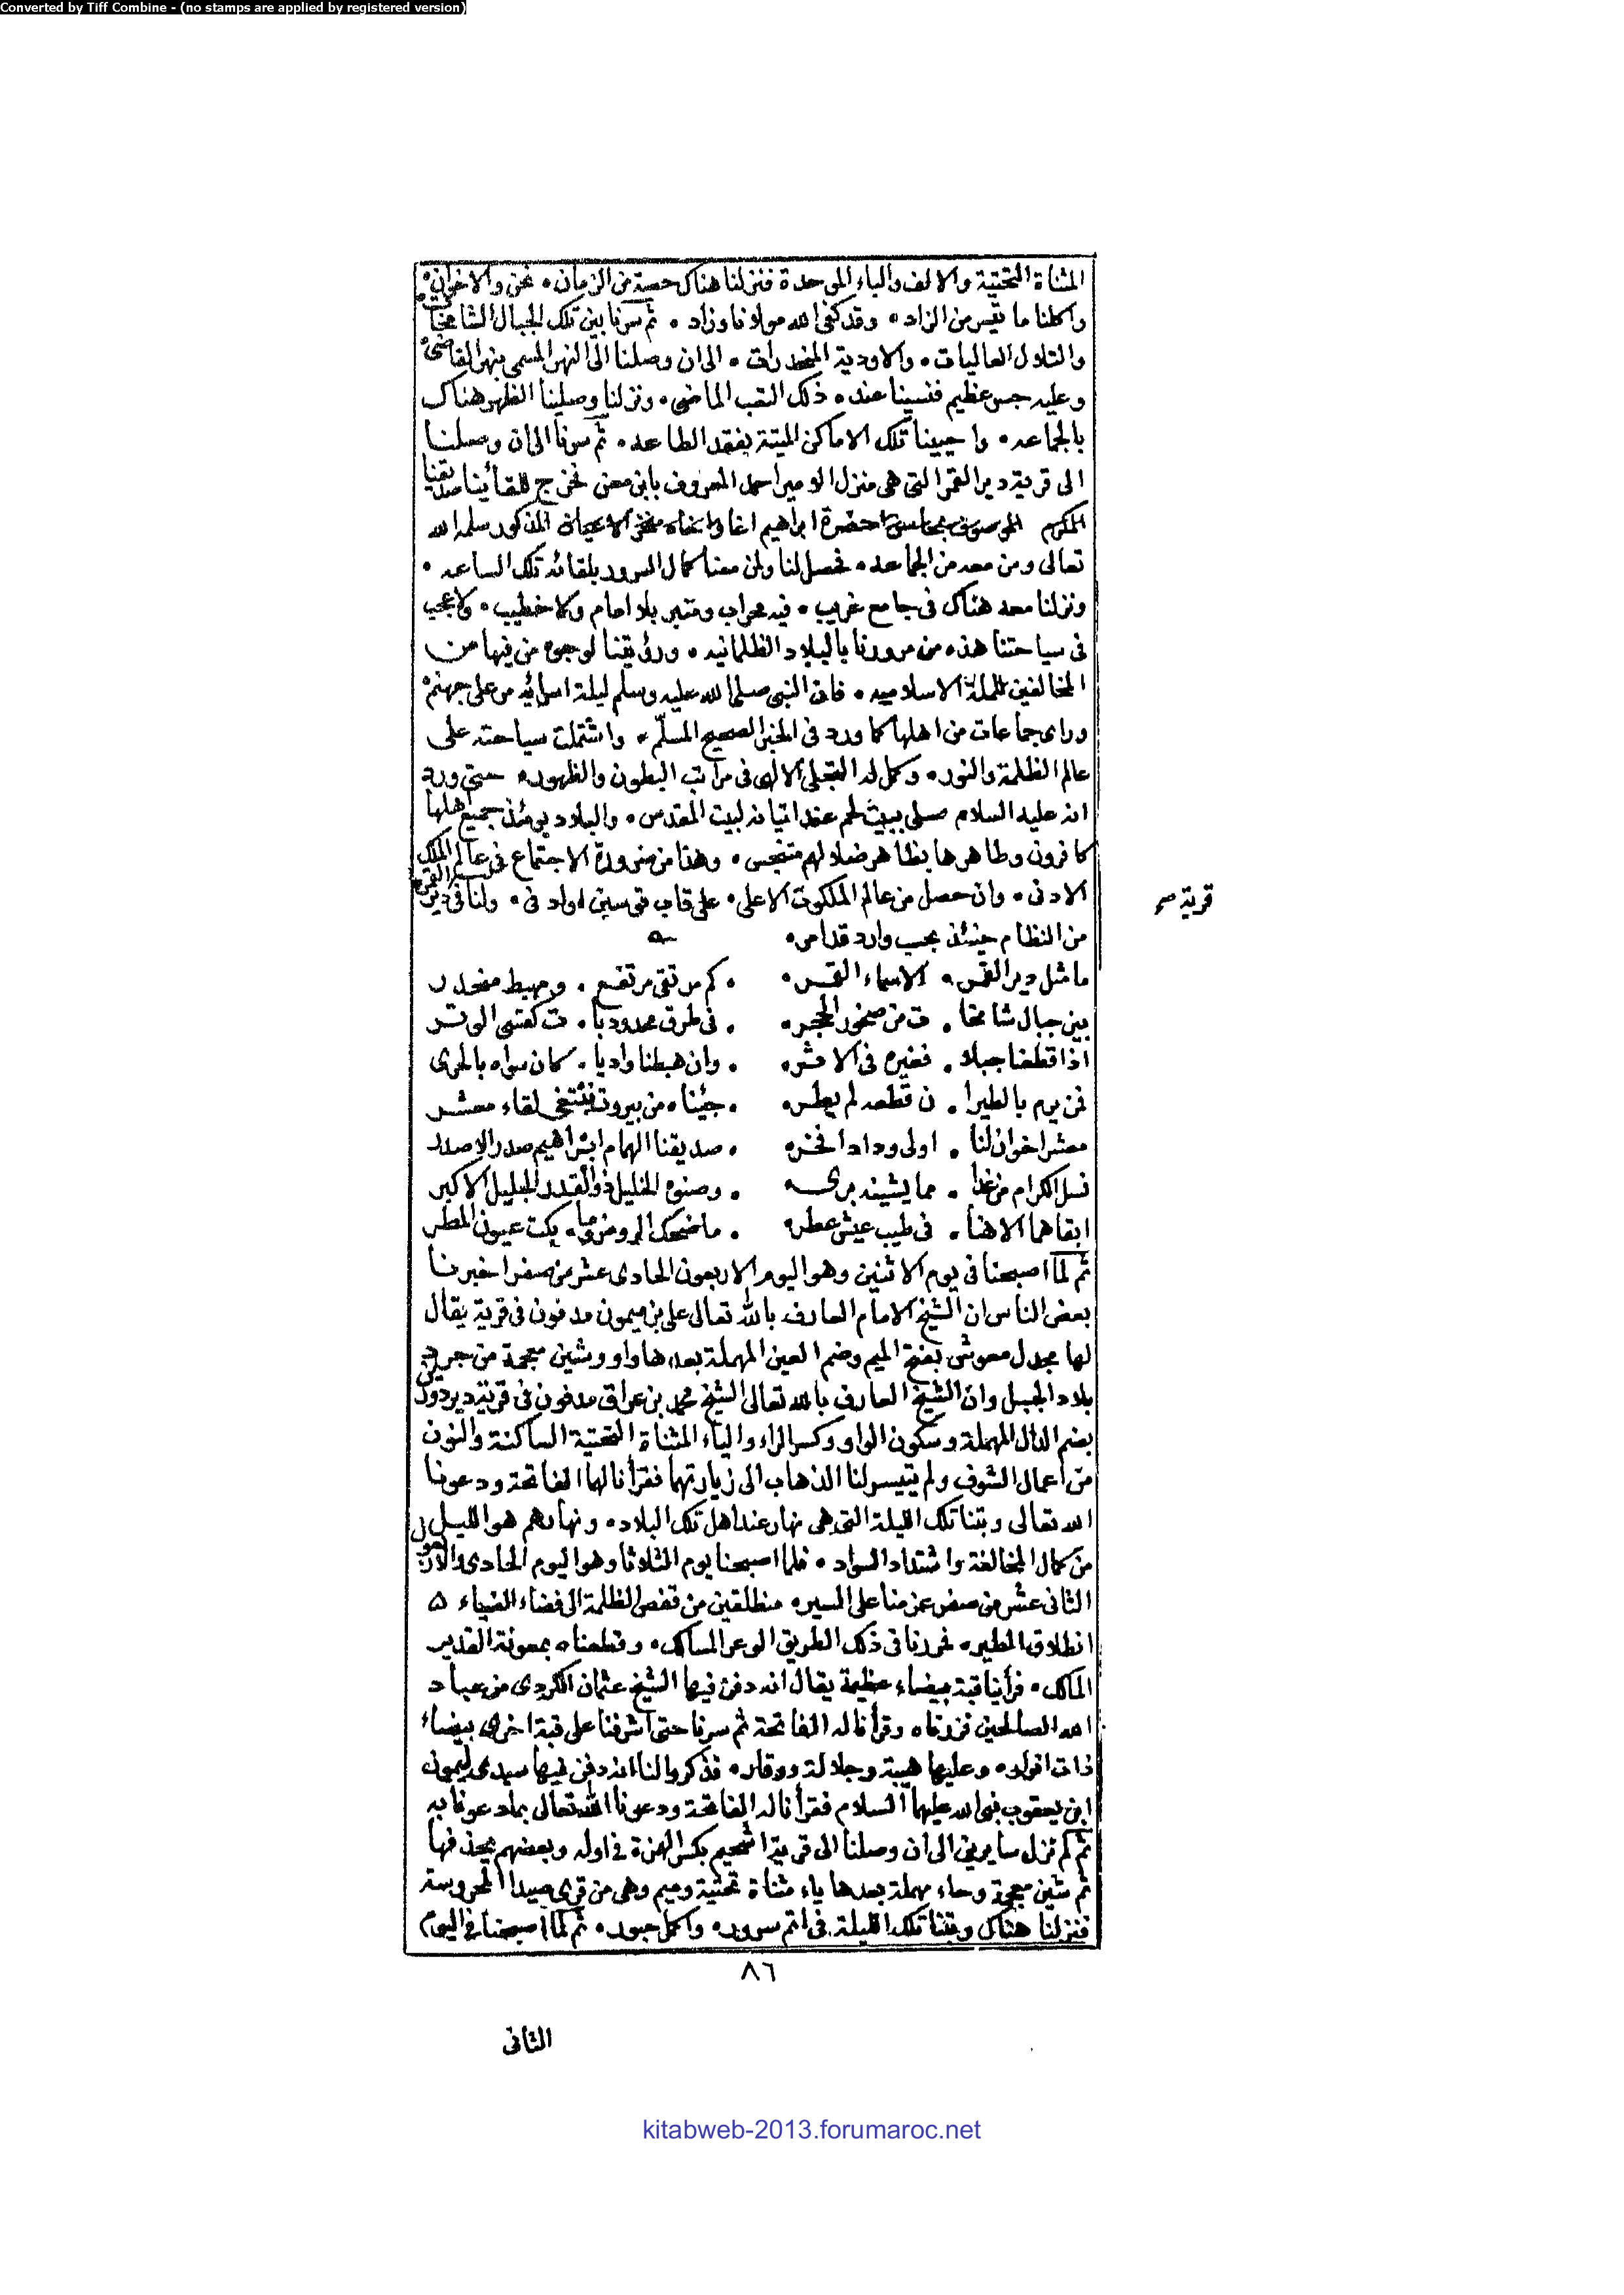 Converted by Tiff Combine - (no stamps are applied by registered version)
المثناة التحتية والالف والباء الموحدة فنزلنا هناك حصة من الزمان٠ نحن والاخوان٠
واكلنا ما تيسر من الزاد٠ وقد كفى الله مولانا وزاد٠ ثم سرنا بين تلك الجبال الشامخات
والتلال العاليات٠ والاودية المنحدرات٠ الى ان وصلنا الى النهر المسمى بنهر القاضى٠
وعليه جسر عظيم فنسينا عنده ذلك التعب الماضى٠ ونزلنا وصلينا الظهر هناك
بالجماعه٠ واحيينا تلك الاماكن الميتة بفقد الطاعه٠ ثم سرنا الى ان وصلنا
الى قرية دير القمر التى هى منزل الامير احمد المعروف بابن معن فخرج للقائنا صديقنا
المكرم الموصوف حضرة ابراهيم اغا واخاه مفخر الاعيان المذكور سلمه الله
تعالى ومن معه من الجماعه٠ فحصل لنا ولمن معنا كمال السرور بلقائه تلك الساعه٠
ونزلنا معه هناك فى جامع غريب٠ فيه محراب ومنبر بلا امام ولا خطيب٠ ولا عجب
فى سياحتنا هذه من مرورنا بالبلاد الظلمانيه٠ ورؤيتنا لوجوه من فيها من
المخالفين للملة الاسلاميه٠ فان النبى صلى الله عليه وسلم ليلة اسرائه مر على جهنم٠
وراى جماعات من اهلها كما ورد فى الخبر الصحيح المسلّم٠ واشتملت سياحته على
عالم الظلمة والنور٠ وكمل له التجلى الالهى فى مراتب البطون والظهور٠ حتى ورد
انه عليه السلام صلى ببيت لحم عند اتيانه لبيت المقدس٠ والبلاد يومئذ جميع اهلها
كافرون وطاهرها بظاهر ضلالهم متنجس٠ وهذا من ضرورة الاجتماع فى عالم الملك
الادنى٠ وان حصل من عالم الملكوت الاعلى٠ على قاب قوسين او ادنى٠ ولنا فى دير القمر
قرية صح
من النظام حينئذ بحسب وارد
ما مثل دير القمر٠ الاسماء القمر٠ كم مرتقى مرتفع٠ ومهبط منحدر
بين جبال شامخا٠ ت من صخور الحجر٠ فى طرق محدودبا٠ ت كقسى الوتر
اذا قطعنا جبلا٠ فغيره فى الاثر٠ وان هبطنا واديا٠ كان سواه بالحرى
فمن يرم بالطيرا٠ ن قطعه لم يطر٠ جئناه من بيروت نبتغى لقاء معشر
معشر اخوان لنا٠ اولى وداد افخر٠ صديقنا الهمام ابراهيم صدر الاصدر
نسل الكرام من غدا٠ مما يشينه برى وصنوه الخليل ذو القدر الجليل الاكبر
ابقاهما الاهنا٠ فى طيب عيش عطر٠ ما ضحك الروض وما٠ بكت عيون المطر
ثم لما اصبحنا فى يوم الاثنين وهو اليوم الاربعون الحادى عشر من صفر اخبرنا
بعض الناس ان الشيخ الامام العارف بالله تعالى على بن ميمون مدفون فى قرية يقال
لها مجدل معوش بفتح الميم وضم العين المهملة بعدها واو وشين معجمة من جرد
بلاد الجبل وان الشيخ العارف بالله تعالى الشيخ محمد بن عراق مدفون فى قرية دير دورين
بضم الدال المهملة وسكون الواو وكسر الراء والياء المثناة التحتية الساكنة والنون
من اعمال الشوف ولم يتيسر لنا الذهاب الى زيارتهما فقرأنا لهما الفاتحة ودعونا
الله تعالى وبتنا تلك الليلة التى هى نهار عند اهل تلك البلاد٠ ونهارهم هو الليل
من كمال المخالفة واشتداد السواد٠ فلما اصبحنا يوم الثلاثا وهو اليوم الحادى والاربعون
الثانى عشر من صفر عزمنا على السير٠ منطلقين من قفص الظلمة الى فضاء الضياء
انطلاق الطير٠ فمررنا فى ذلك الطريق الوعر المسالك٠ وقطعناه بمعونة القدير
المالك٠ فرأينا قبة بيضاء عظيمة يقال انه دفن فيها الشيخ عثمان الكردى من عباد
الله الصالحين فزرناه وقرأنا له الفاتحة ثم سرنا حتى اشرفنا على قبة اخرى بيضاء
ذات انوار٠ وعليها هيبة وجلالة ووقار٠ فذكروا لنا انه دفن فيها سيدى ليمون
ابن يعقوب نبى الله عليهما السلام فقرأنا له الفاتحة ودعونا الله تعالى بما دعونا به
ثم لم نزل سايرين الى ان وصلنا الى قرية اشحيم بكسر الهمزة فى اوله وبعضهم يحذفها
ثم شين معجمة وحاء مهملة بعدها ياء مثناة تحتية وميم وهى من قرى صيدا المحروسة
فنزلنا هناك وبتنا تلك الليلة فى اتم سرور٠ واكمل حبور٠ ثم لما اصبحنا فى اليوم
٨٦
الثانى
kitabweb-2013.forumaroc.net